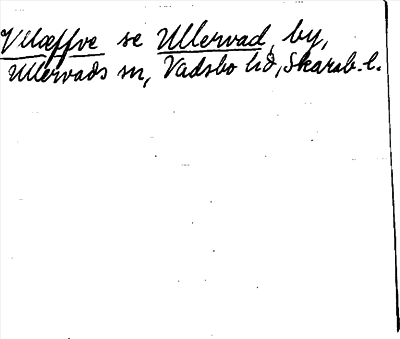 Vllæffve se Ullervad, by,
Ullervads sn, Vadsbo hd, Skarab. l.